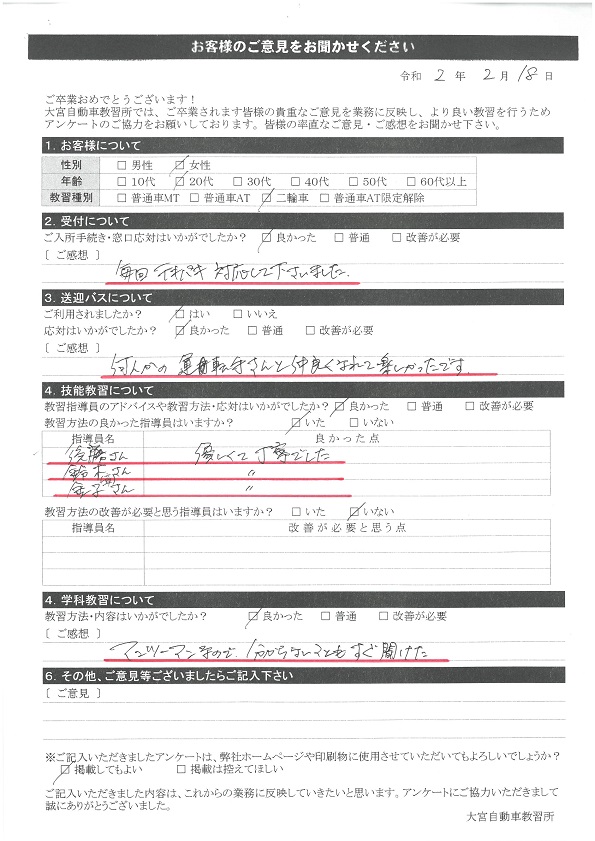 お客様のご意見をお聞かせください
令和 2 年 2 月 18 日
ご卒業おめでとうございます！
大宮自動車教習所では、ご卒業されます皆様の貴重なご意見を業務に反映し、より良い教習を行うため
アンケートのご協力をお願いしております。皆様の率直なご意見・ご感想をお聞かせ下さい。
1. お客様について
性別 □ 男性 ☑ 女性
年齢 □ 10代 ☑ 20代 □ 30代 □ 40代 □ 50代 □ 60代以上
教習種別 □ 普通車MT □ 普通車AT ☑ 二輪車 □ 普通車AT限定解除
2. 受付について
ご入所手続き・窓口応対はいかがでしたか？ ☑ 良かった □ 普通 □ 改善が必要
〔 ご感想 〕
毎回 テキパキ 対応して下さいました。
3. 送迎バスについて
ご利用されましたか？ ☑ はい □ いいえ
応対はいかがでしたか？ ☑ 良かった □ 普通 □ 改善が必要
〔 ご感想 〕
何人かの 運転手さんと仲良くなれて楽しかったです。
4. 技能教習について
教習指導員のアドバイスや教習方法・応対はいかがでしたか？ ☑ 良かった □ 普通 □ 改善が必要
教習方法の良かった指導員はいますか？ ☑ いた □ いない
指導員名 良かった点
後藤さん 優しくて丁寧でした
鈴木さん 〃
金子さん 〃
教習方法の改善が必要と思う指導員はいますか？ □ いた ☑ いない
指導員名 改善が必要と思う点
4. 学科教習について
教習方法・内容はいかがでしたか？ ☑ 良かった □ 普通 □ 改善が必要
〔 ご感想 〕
マンツーマンなので、分からないこともすぐ聞けた
6. その他、ご意見等ございましたらご記入下さい
〔 ご意見 〕
※ご記入いただきましたアンケートは、弊社ホームページや印刷物に使用させていただいてもよろしいでしょうか？
☑ 掲載してもよい □ 掲載は控えてほしい
ご記入いただきました内容は、これからの業務に反映していきたいと思います。アンケートにご協力いただきまして
誠にありがとうございました。
大宮自動車教習所